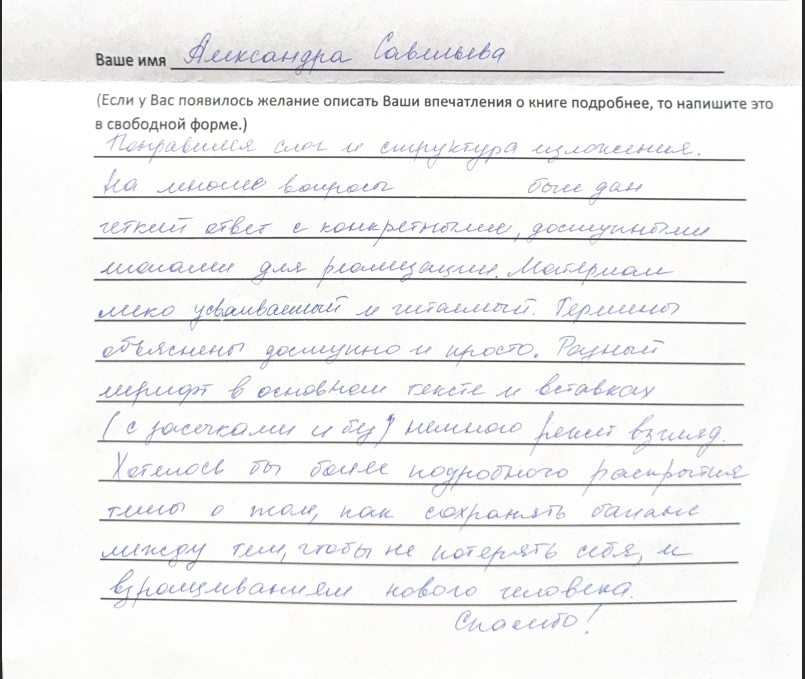 Ваше имя Александра Савельева
(Если у Вас появилось желание описать Ваши впечатления о книге подробнее, то напишите это
в свободной форме.)
Понравился слог и структура изложения.
На многие вопросы был дан
четкий ответ с конкретными, доступными
шагами для реализации. Материал
легко усваиваемый и читаемый. Термины
объяснены доступно и просто. Разный
шрифт в основном тексте и вставках
(с засечками и без) немного режет взгляд.
Хотелось бы более подробного раскрытия
темы о том, как сохранять баланс
между тем, чтобы не потерять себя, и
взращиванием нового человека.
Спасибо!